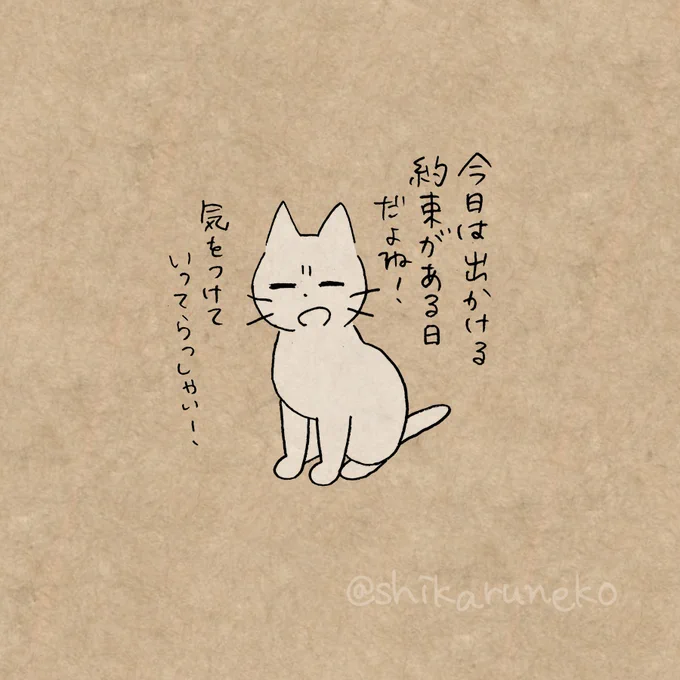 今日は出かける
約束がある日
だよね!
気をつけて
いってらっしゃいー!
@shikaruneko